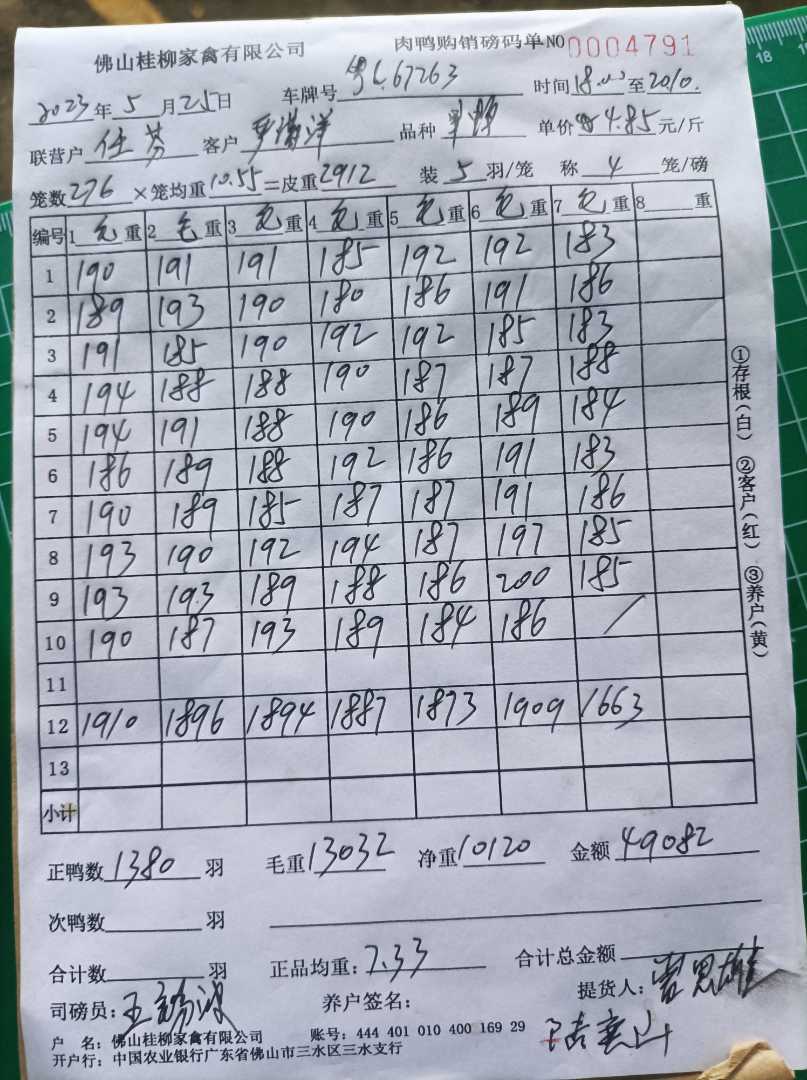 佛山桂柳家禽有限公司 肉鸭购销磅码单 NO 0004791
2023年5月25日 车牌号 粤L67263 时间18: 至20:10.
联营户 任芬 客户 洋 品种 单价 4.85元/斤
笼数276×笼均重10.55=皮重2912 装5羽/笼 称4笼/磅
编号 1毛重 2毛重 3毛重 4毛重 5毛重 6毛重 7毛重 8重
1 190 191 191 185 192 192 183
2 189 193 190 180 186 191 186
3 191 185 190 192 192 185 183
4 194 188 188 190 187 187 188
5 194 191 188 190 186 189 184
6 186 189 188 192 186 191 183
7 190 189 185 187 187 191 186
8 193 190 192 194 187 197 185
9 193 193 189 188 186 200 185
10 190 187 193 189 184 186 /
11
12 1910 1896 1894 1887 1873 1909 1663
13
小计
①存根(白) ②客户(红) ③养户(黄)
正鸭数1380羽 毛重13032 净重10120 金额49082
次鸭数 羽
合计数 羽 正品均重:7.33 合计总金额
司磅员:王 波 养户签名: 提货人: 思雄
户 名:佛山桂柳家禽有限公司 账号:444 401 010 400 169 29
开户行:中国农业银行广东省佛山市三水区三水支行
18